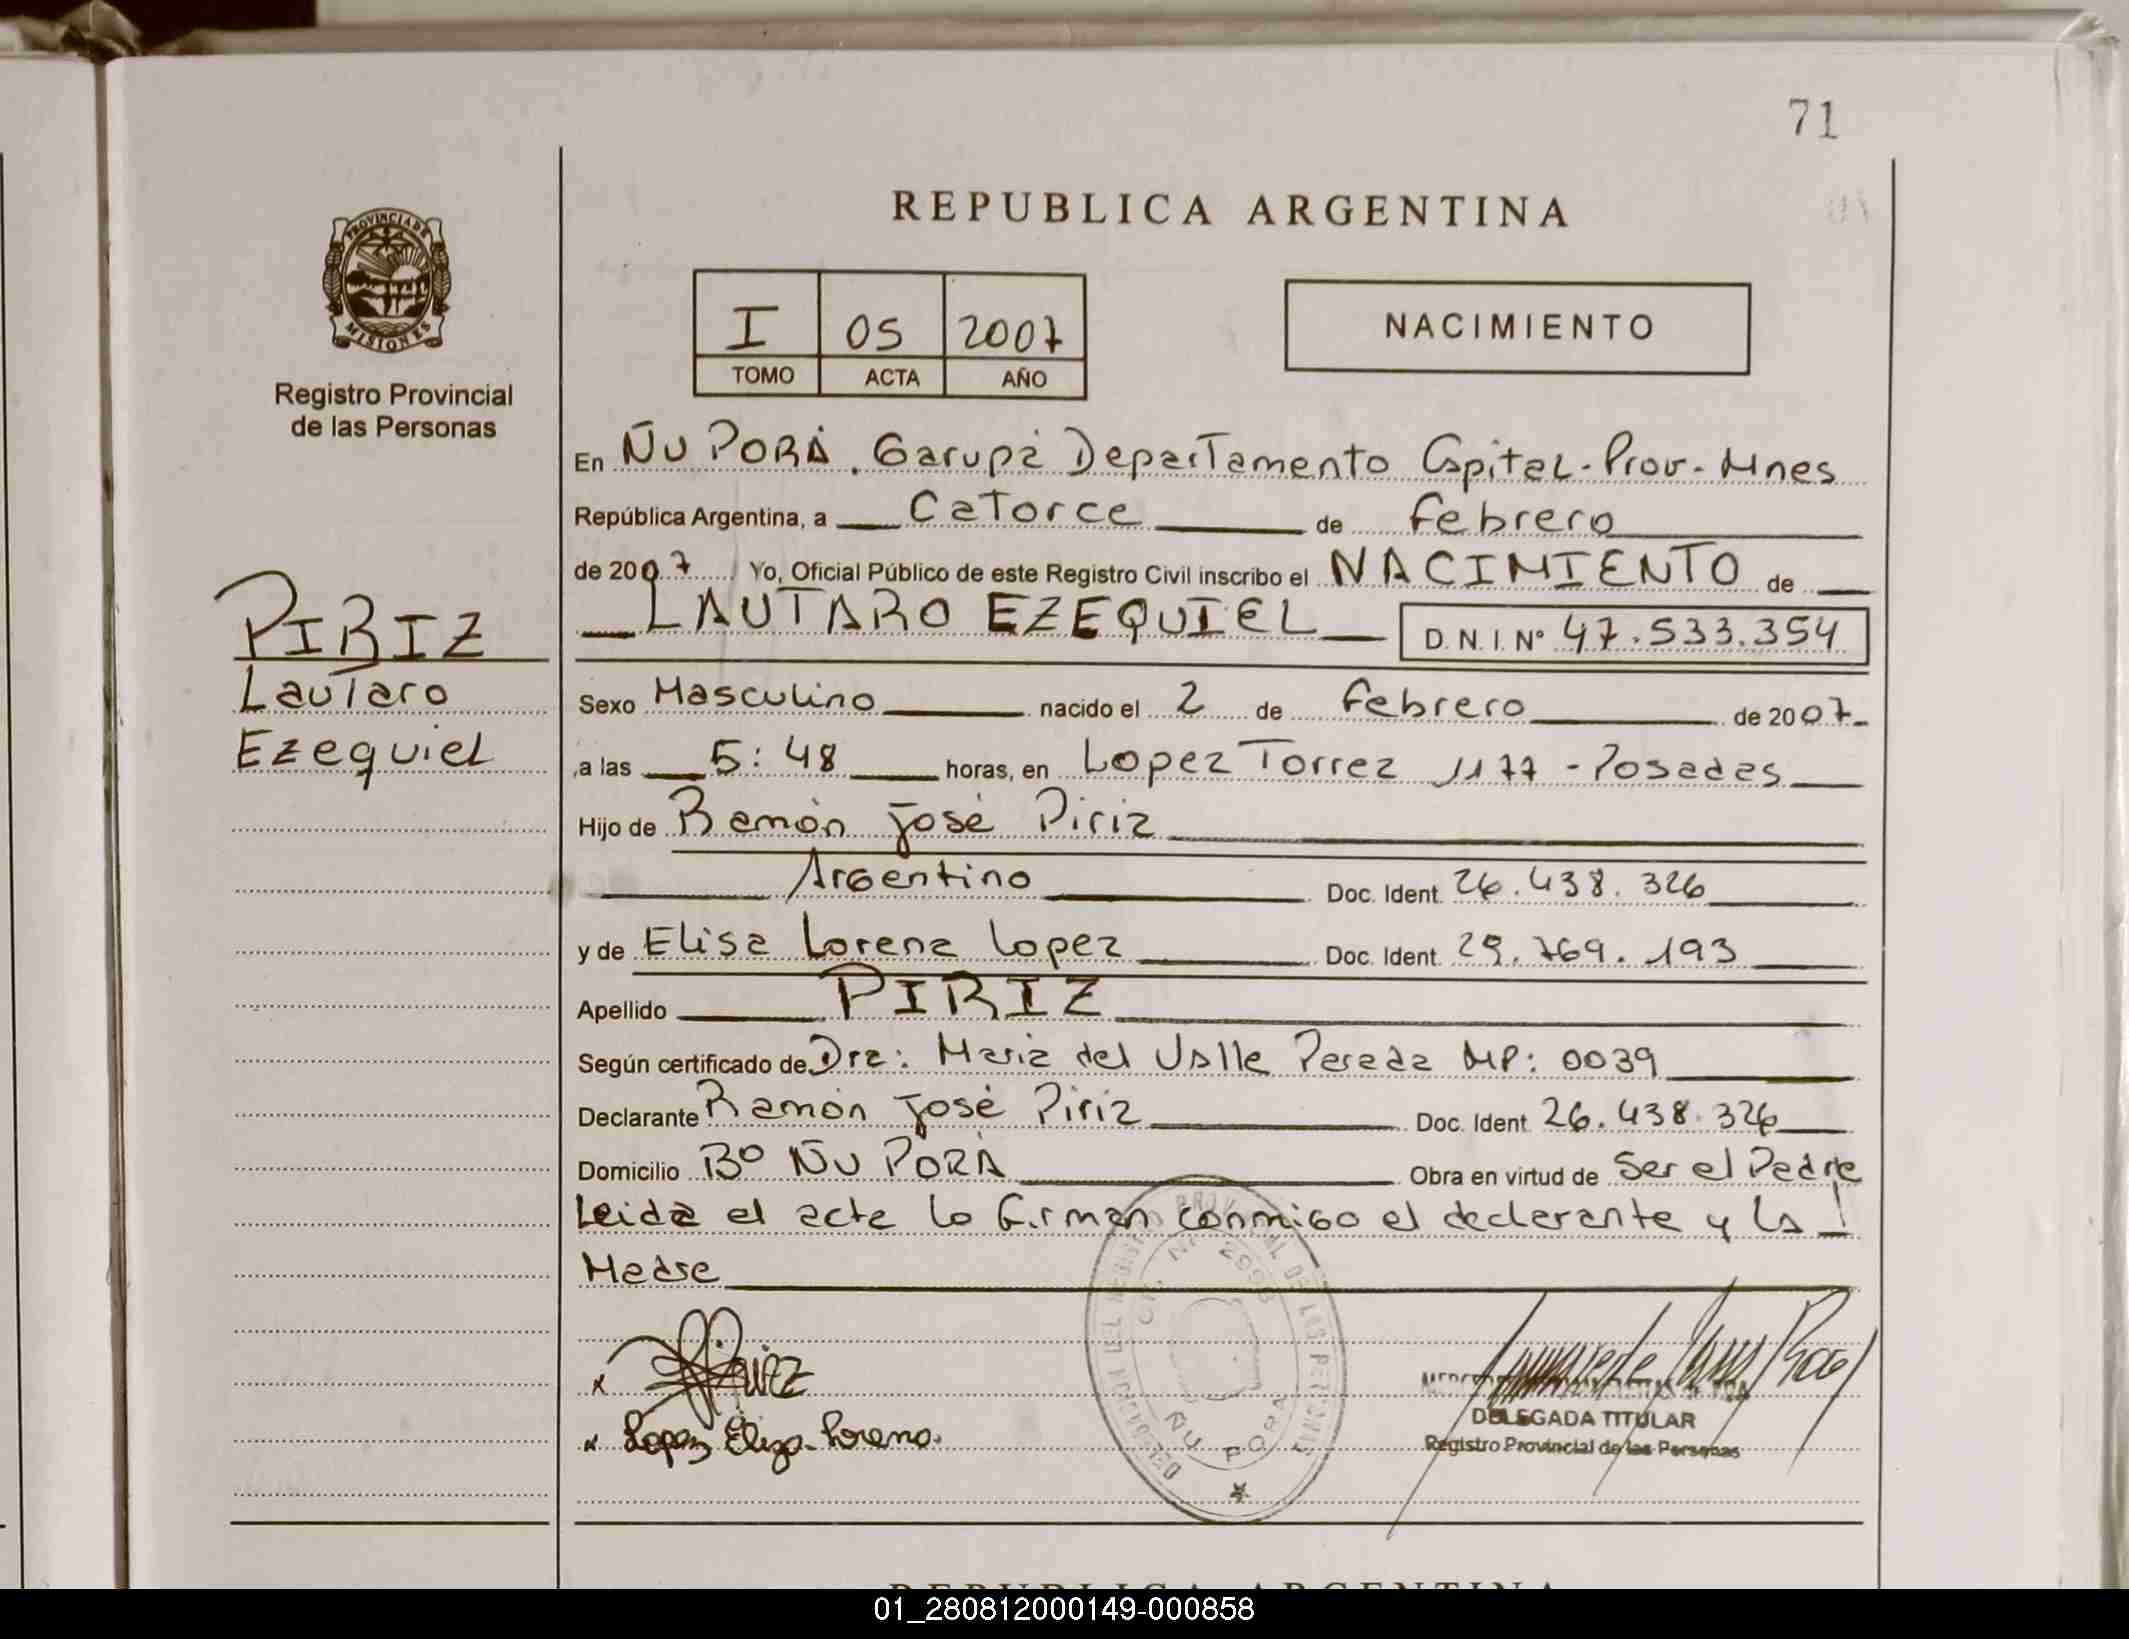 71
REPUBLICA ARGENTINA
PROVINCIA DE MISIONES
Registro Provincial
de las Personas
I 05 2007
TOMO ACTA AÑO
NACIMIENTO
En ÑU PORÁ. Garupá Departamento Capital-Prov-Mnes
República Argentina, a Catorce de Febrero
de 2007 Yo, Oficial Público de este Registro Civil inscribo el NACIMIENTO de
LAUTARO EZEQUIEL D.N.I. Nº 47.533.354
PIRIZ
Lautaro
Ezequiel
Sexo Masculino nacido el 2 de Febrero de 2007
,a las 5:48 horas, en Lopez Torrez 1177 - Posadas
Hijo de Ramón José Piriz
Argentino Doc. Ident. 26.438.326
y de Elisa Lorena Lopez Doc. Ident. 29.769.193
Apellido PIRIZ
Según certificado de Dra: Maria del Valle Pereda MP: 0039
Declarante Ramón José Piriz Doc. Ident. 26.438.326
Domicilio Bº ÑU PORÁ Obra en virtud de Ser el Padre
Leida el acta lo firman conmigo el declarante y la
Madre
x PIRIZ
x Lopez Elisa Lorena.
DELEGACION DEL REGISTRO PROVINCIAL DE LAS PERSONAS
ÑU PORA
DELEGADA TITULAR
Registro Provincial de las Personas
REPUBLICA ARGENTINA
01_280812000149-000858